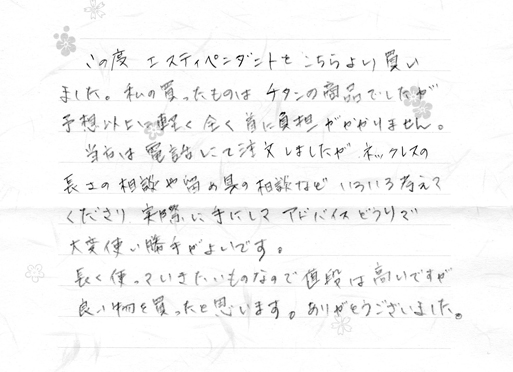 この度 エスティペンダントをこちらより買い
ました。私の買ったものは チタンの商品でしたが
予想以上に軽く全く首に負担がかかりません。
当初は電話にて注文しましたが、ネックレスの
長さの相談や留め具の相談など いろいろ考えて
くださり、実際に手にして アドバイスどうりで
大変使い勝手がよいです。
長く使っていきたいものなので値段は高いですが
良い物を買ったと思います。ありがとうございました。